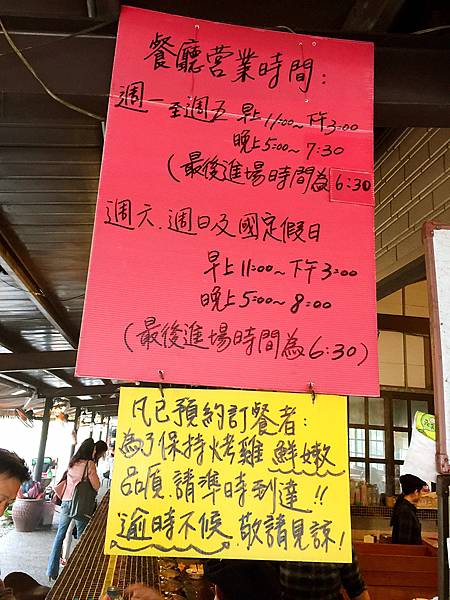 餐廳营業時間：
週一至週五 早上11:00~下午3:00
晚上5:00~7:30
(最後進場時間為6:30
週六.週日及國定假日
早上11:00~下午3:00
晚上5:00~8:00
(最後進場時間為6:30)
凡已預約訂餐者：
為了保持烤雞鮮嫩
品質.請準時到達!!
逾時不候 敬請見諒!